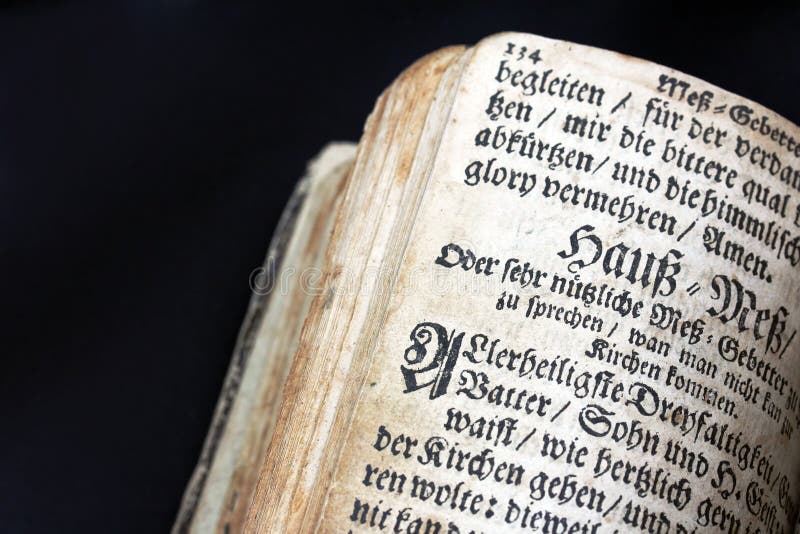 134 Meß-Gebetter
begleiten / für der verdam
tzen / mir die bittere qual
abkürtzen / und die himmlisch
glory vermehren / Amen.
Hauß-Meß /
Oder sehr nützliche Meß-Gebetter zu
zu sprechen / wan man nicht kan zur
Kirchen kommen.
ALlerheiligste Dreyfaltigkeit /
Vatter / Sohn und H. Geist
waist / wie hertzlich gern i
der Kirchen gehen / und
ren wolte: dieweil
nit kan
dreamstime